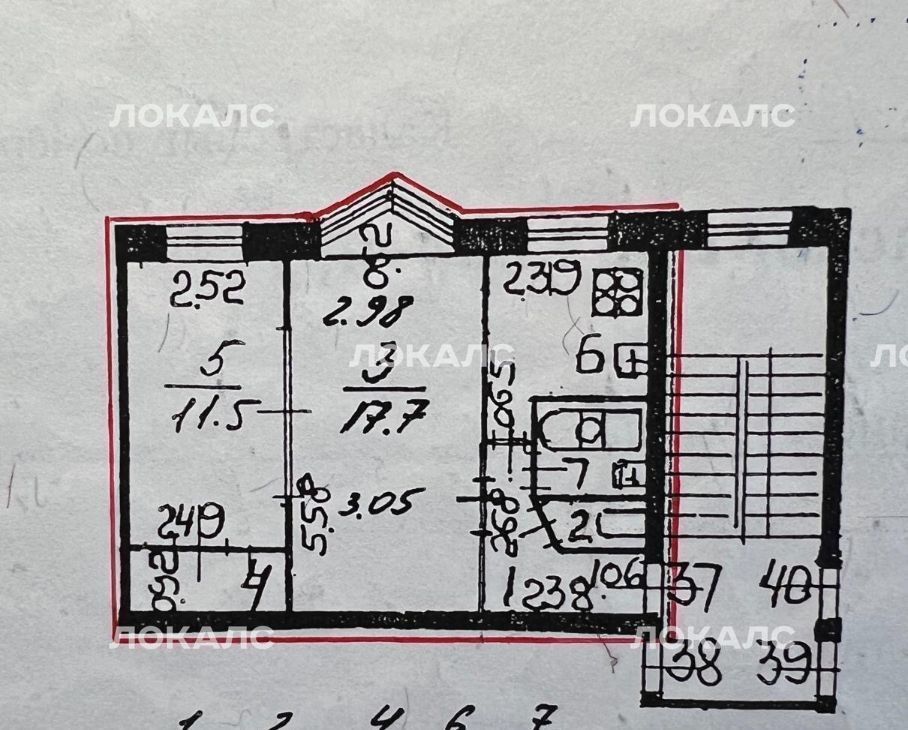 ЛОКАЛС ЛОКАЛС
8.2
2.52 2.98 2.39
5 3 ЛОКАЛС 6 ЛО
11.5 17.7 0.65
7
2.49 5.58 3.05 2.68 2
0.92 4 1 2.38 1.06 37 40
ЛОКАЛС ЛОКАЛС
38 39
1 2 4 6 7